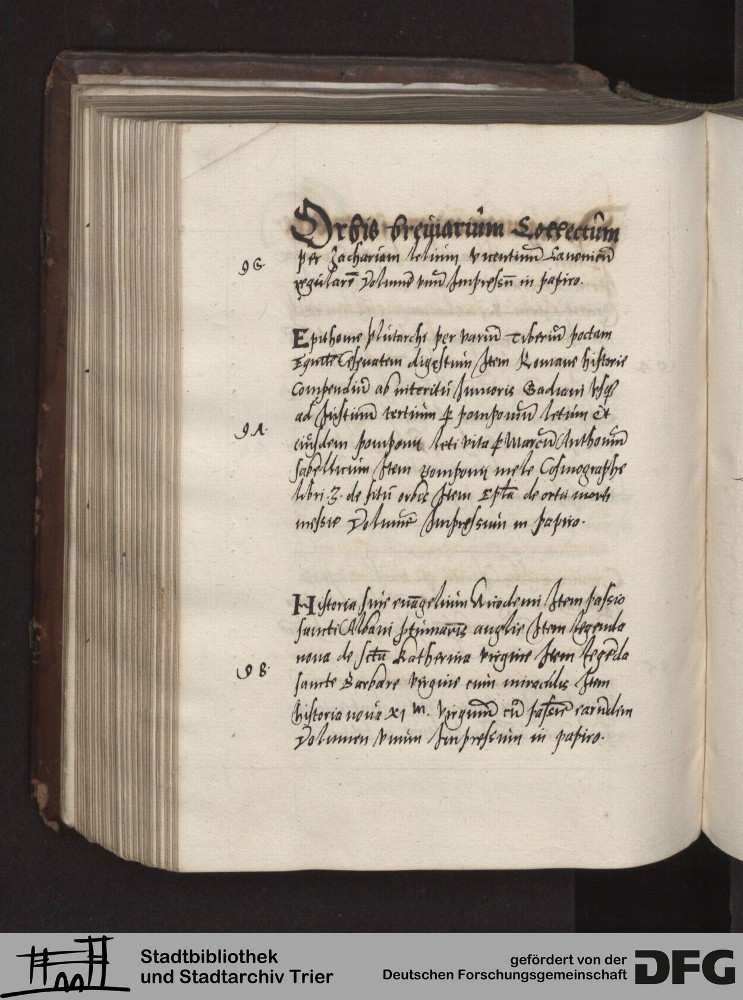 Orbis breuiarium Collectum
per Zachariam lelium vicentinū Canonicū
regularē Volumē vnū Impressū in papiro.
9 G.
Epithome plutarchi per variū Tiberiū poetam
digestum Item Romane historie
Compendiū ab interitu Iunioris Gadiani vsqȝ
ad Iustinū tertium ꝑ pomponiū letum Et
9 A.
eiusdem pomponij leti vita ꝑ Marcū Anthoniū
sabellicum Item pomponij mele Cosmographi
libri .3. de situ orbis Item Epꝉa de ortu morte
messie Volumē Impressum in papiro.
Historia siue euāgelium Nicodemi Item passio
sancti Albani anglie Item legenda
noua de sctā Katherina virgine Item legēda
9 B.
sancte Barbare virginis cum miraculis Item
historia noua XI m. virginū cū passiōe earundem
Volumen vnum Impressum in papiro.
Stadtbibliothek
und Stadtarchiv Trier
gefördert von der
Deutschen Forschungsgemeinschaft
DFG